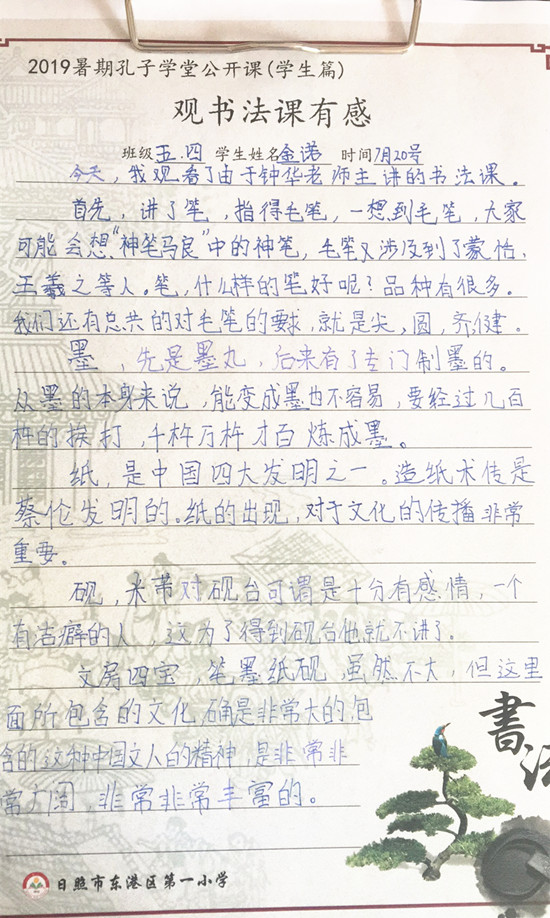 2019暑期孔子学堂公开课(学生篇)
观书法课有感
班级五.四 学生姓名金诺 时间7月20号
今天，我观看了由于钟华老师主讲的书法课。
首先，讲了笔，指得毛笔，一想到毛笔，大家
可能会想“神笔马良”中的神笔，毛笔又涉及到了蒙恬，
王羲之等人。笔，什么样的笔好呢？品种有很多。
我们还有总共的对毛笔的要求，就是尖，圆，齐健。
墨，先是墨丸，后来有了专门制墨的。
从墨的本身来说，能变成墨也不容易，要经过几百
杵的挨打，千杵万杵才百炼成墨。
纸，是中国四大发明之一。造纸术传是
蔡伦发明的。纸的出现，对于文化的传播非常
重要。
砚，米芾对砚台可谓是十分有感情，一个
有洁癖的人 这为了得到砚台他就不讲了。
文房四宝，笔墨纸砚，虽然不大，但这里
面所包含的文化确是非常大的，包
含的这种中国文人的精神，是非常非
常广阔 非常非常丰富的。
書法
日照市东港区第一小学